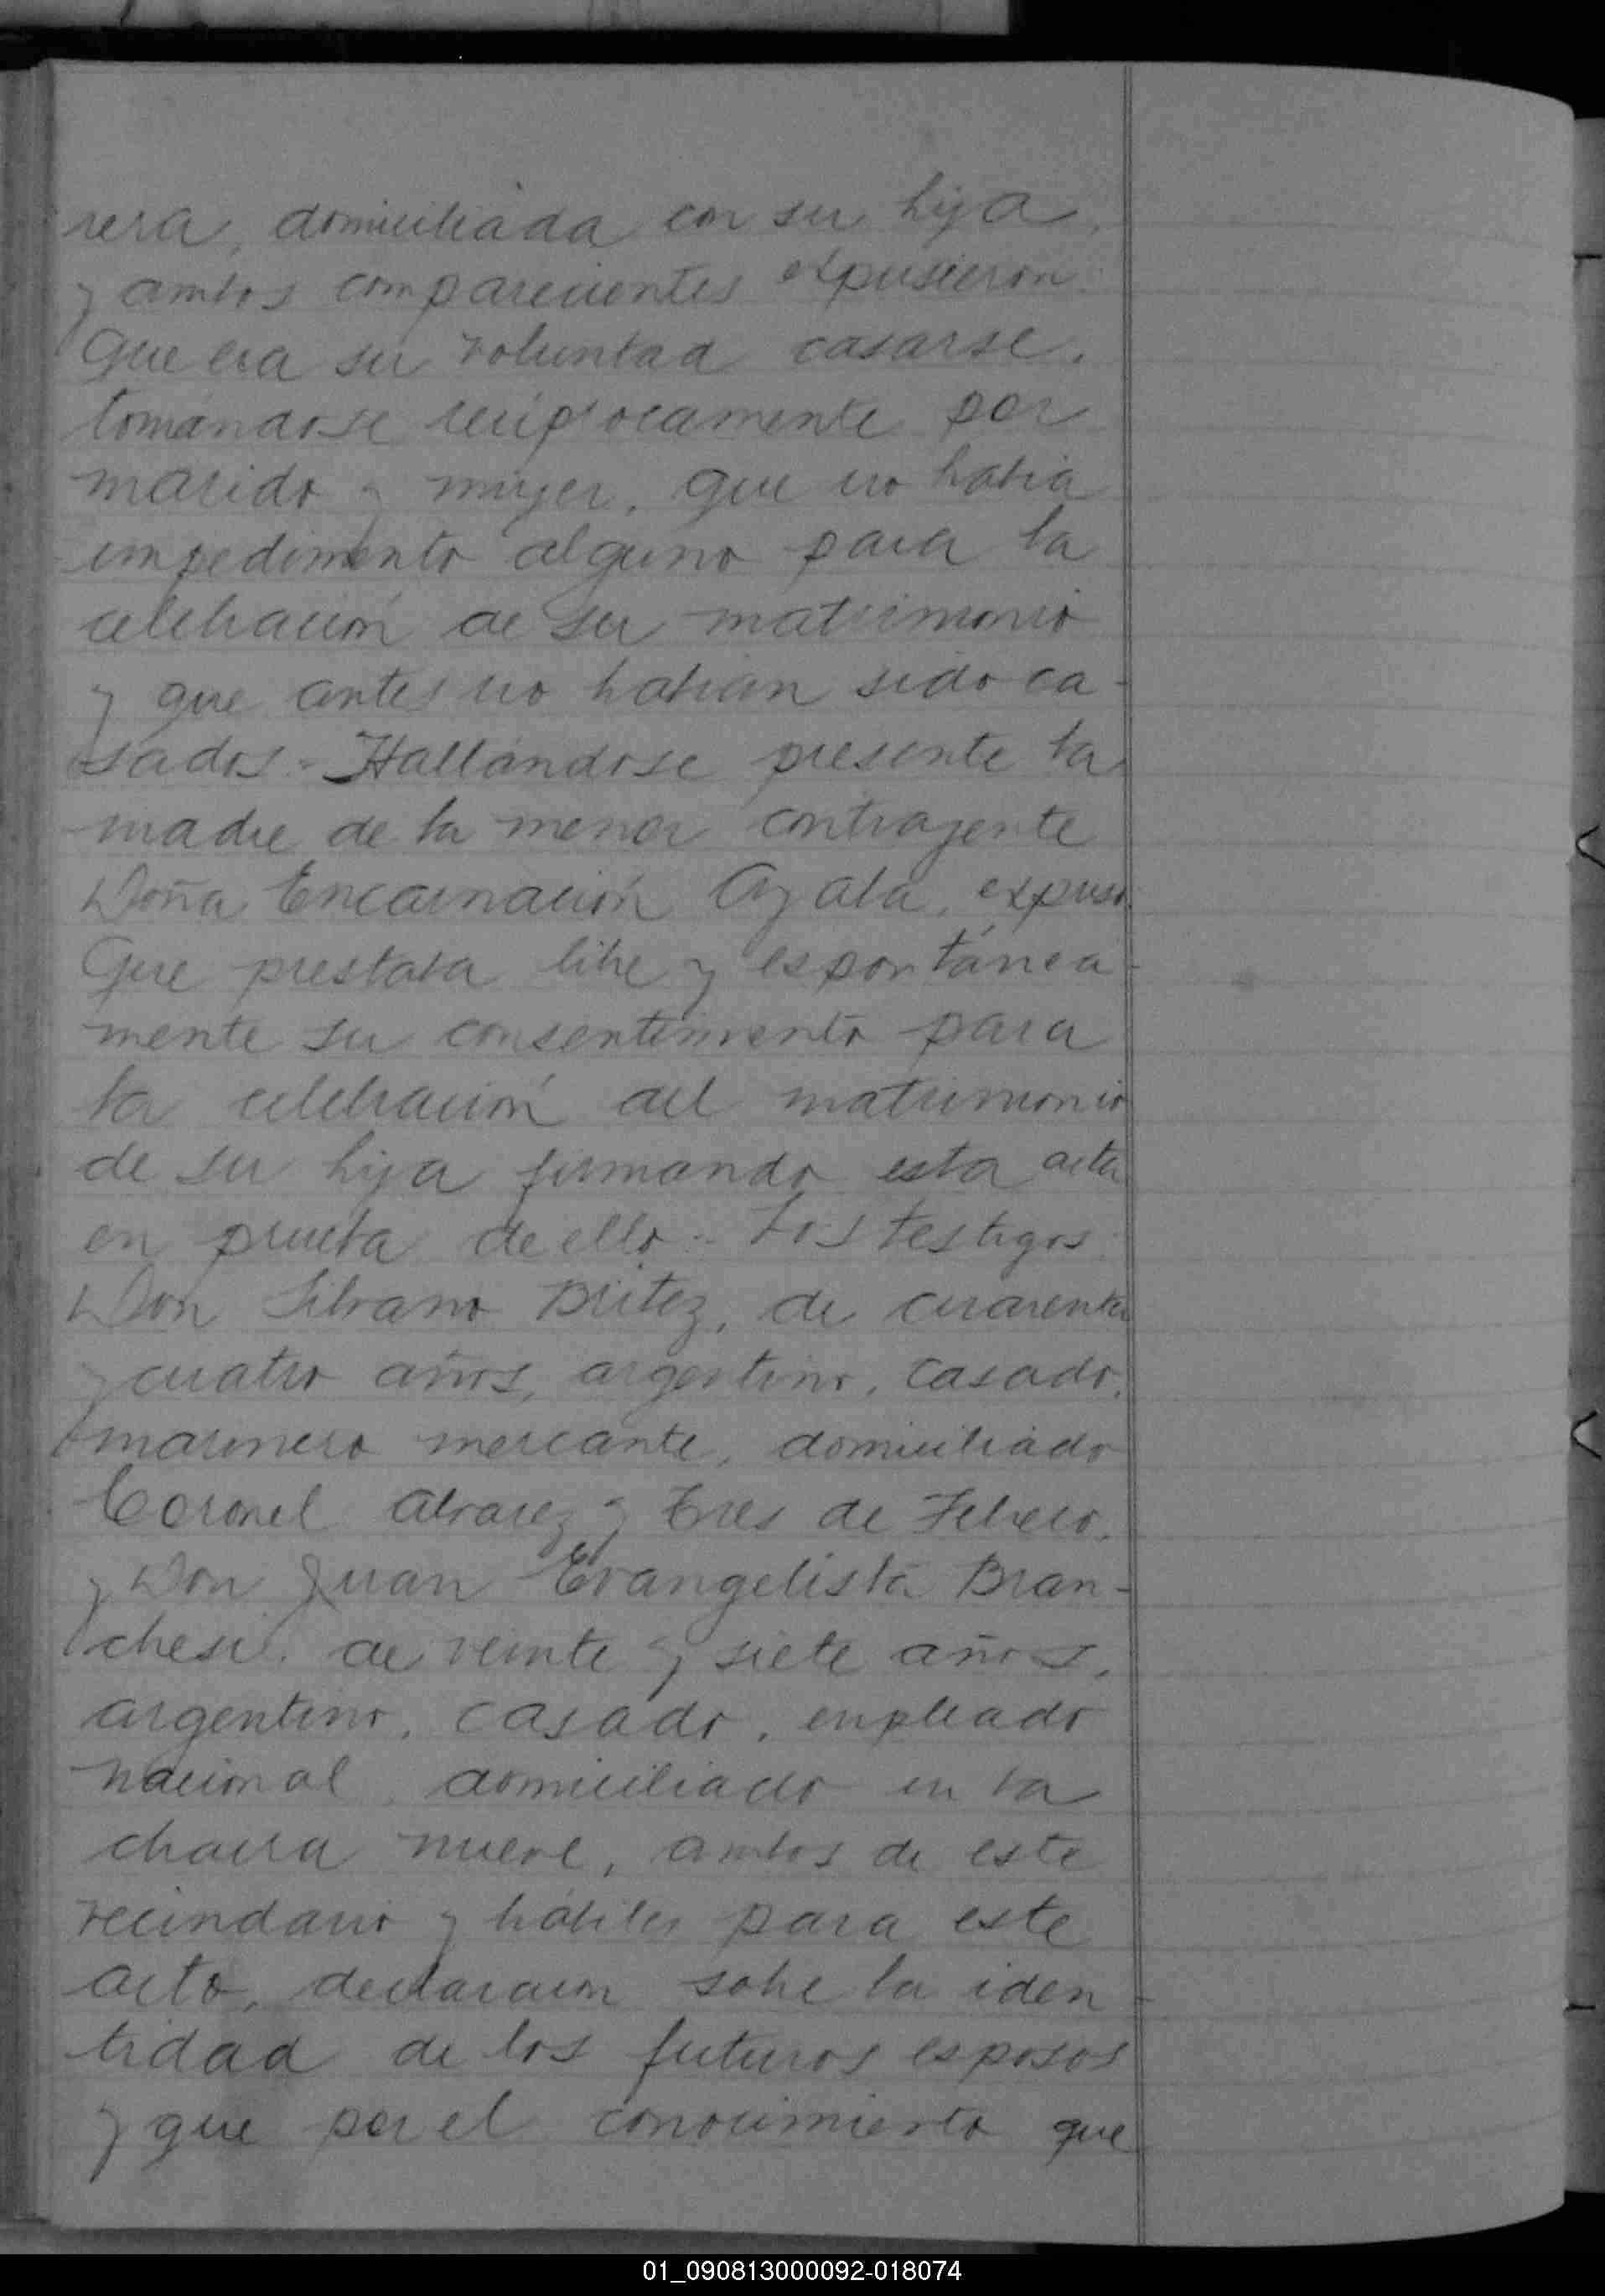 rera, domiciliada con su hija,
y ambos comparecientes expusieron:
Que era su voluntad casarse,
tomándose recíprocamente por
marido y mujer, que no había
impedimento alguno para la
celebración de su matrimonio
y que antes no habían sido ca-
sados.- Hallándose presente la
madre de la menor contrayente
Doña Encarnación Ayala, expuso:
Que prestaba libre y espontánea-
mente su consentimiento para
la celebración del matrimonio
de su hija firmando esta acta
en prueba de ello.- Los testigos
Don Silvano Britez, de cuarenta
y cuatro años, argentino, casado,
marinero mercante, domiciliado
Coronel Alvarez y Tres de Febrero,
y Don Juan Evangelista Bran-
chesi, de veinte y siete años,
argentino, casado, empleado
nacional, domiciliado en la
chacra nueve, ambos de este
vecindario y hábiles para este
acto, declararon sobre la iden-
tidad de los futuros esposos
y que por el conocimiento que
01_090813000092-018074